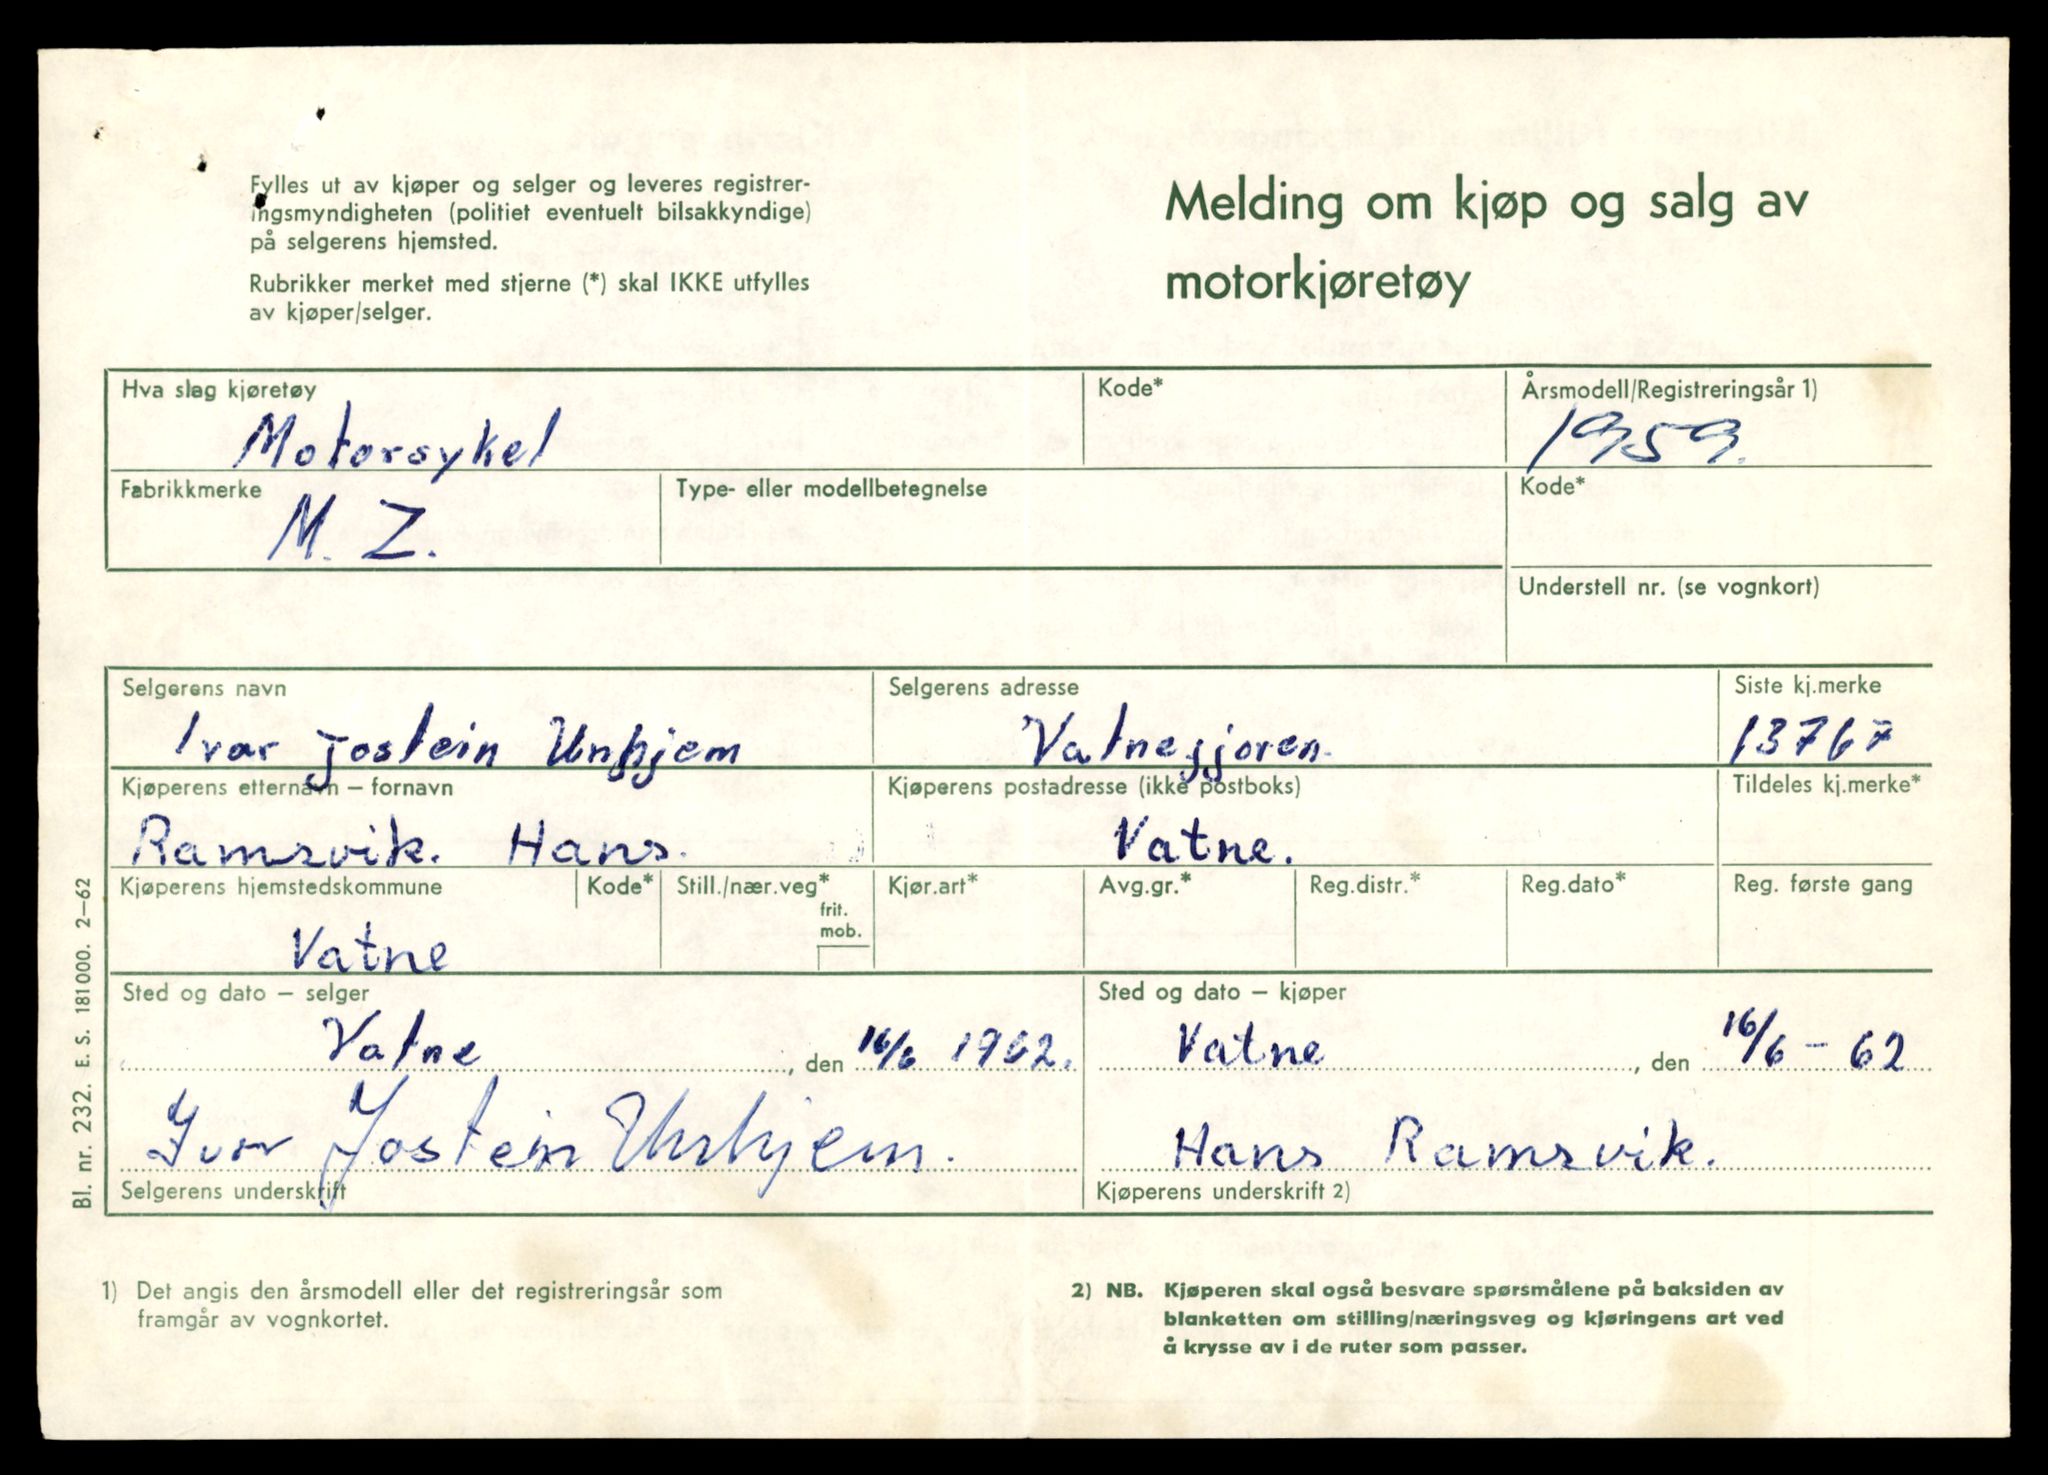 Fylles ut av kjøper og selger og leveres registrer-
ingsmyndigheten (politiet eventuelt bilsakkyndige)
på selgerens hjemsted.
Rubrikker merket med stjerne (*) skal IKKE utfylles
av kjøper/selger.
Melding om kjøp og salg av
motorkjøretøy
Hva slag kjøretøy
Kode*
Årsmodell/Registreringsår 1)
Motorsykel
1959.
Fabrikkmerke
Type- eller modellbetegnelse
Kode*
M. Z.
Understell nr. (se vognkort)
Selgerens navn
Selgerens adresse
Siste kj.merke
Ivar Jostein Unhjem
Vatnegjoren.
13767
Kjøperens etternavn – fornavn
Kjøperens postadresse (ikke postboks)
Tildeles kj.merke*
Ramsvik. Hans.
Vatne.
Kjøperens hjemstedskommune
Kode*
Still./nær.veg*
frit.
mob.
Kjør.art*
Avg.gr.*
Reg.distr.*
Reg.dato*
Reg. første gang
Vatne
Sted og dato – selger
Sted og dato – kjøper
Vatne, den 16/6 1962.
Vatne, den 16/6 – 62
Ivar Jostein Unhjem.
Hans Ramsvik.
Selgerens underskrift
Kjøperens underskrift 2)
1) Det angis den årsmodell eller det registreringsår som
framgår av vognkortet.
2) NB. Kjøperen skal også besvare spørsmålene på baksiden av
blanketten om stilling/næringsveg og kjøringens art ved
å krysse av i de ruter som passer.
Bl. nr. 232. E. S. 181000. 2–62